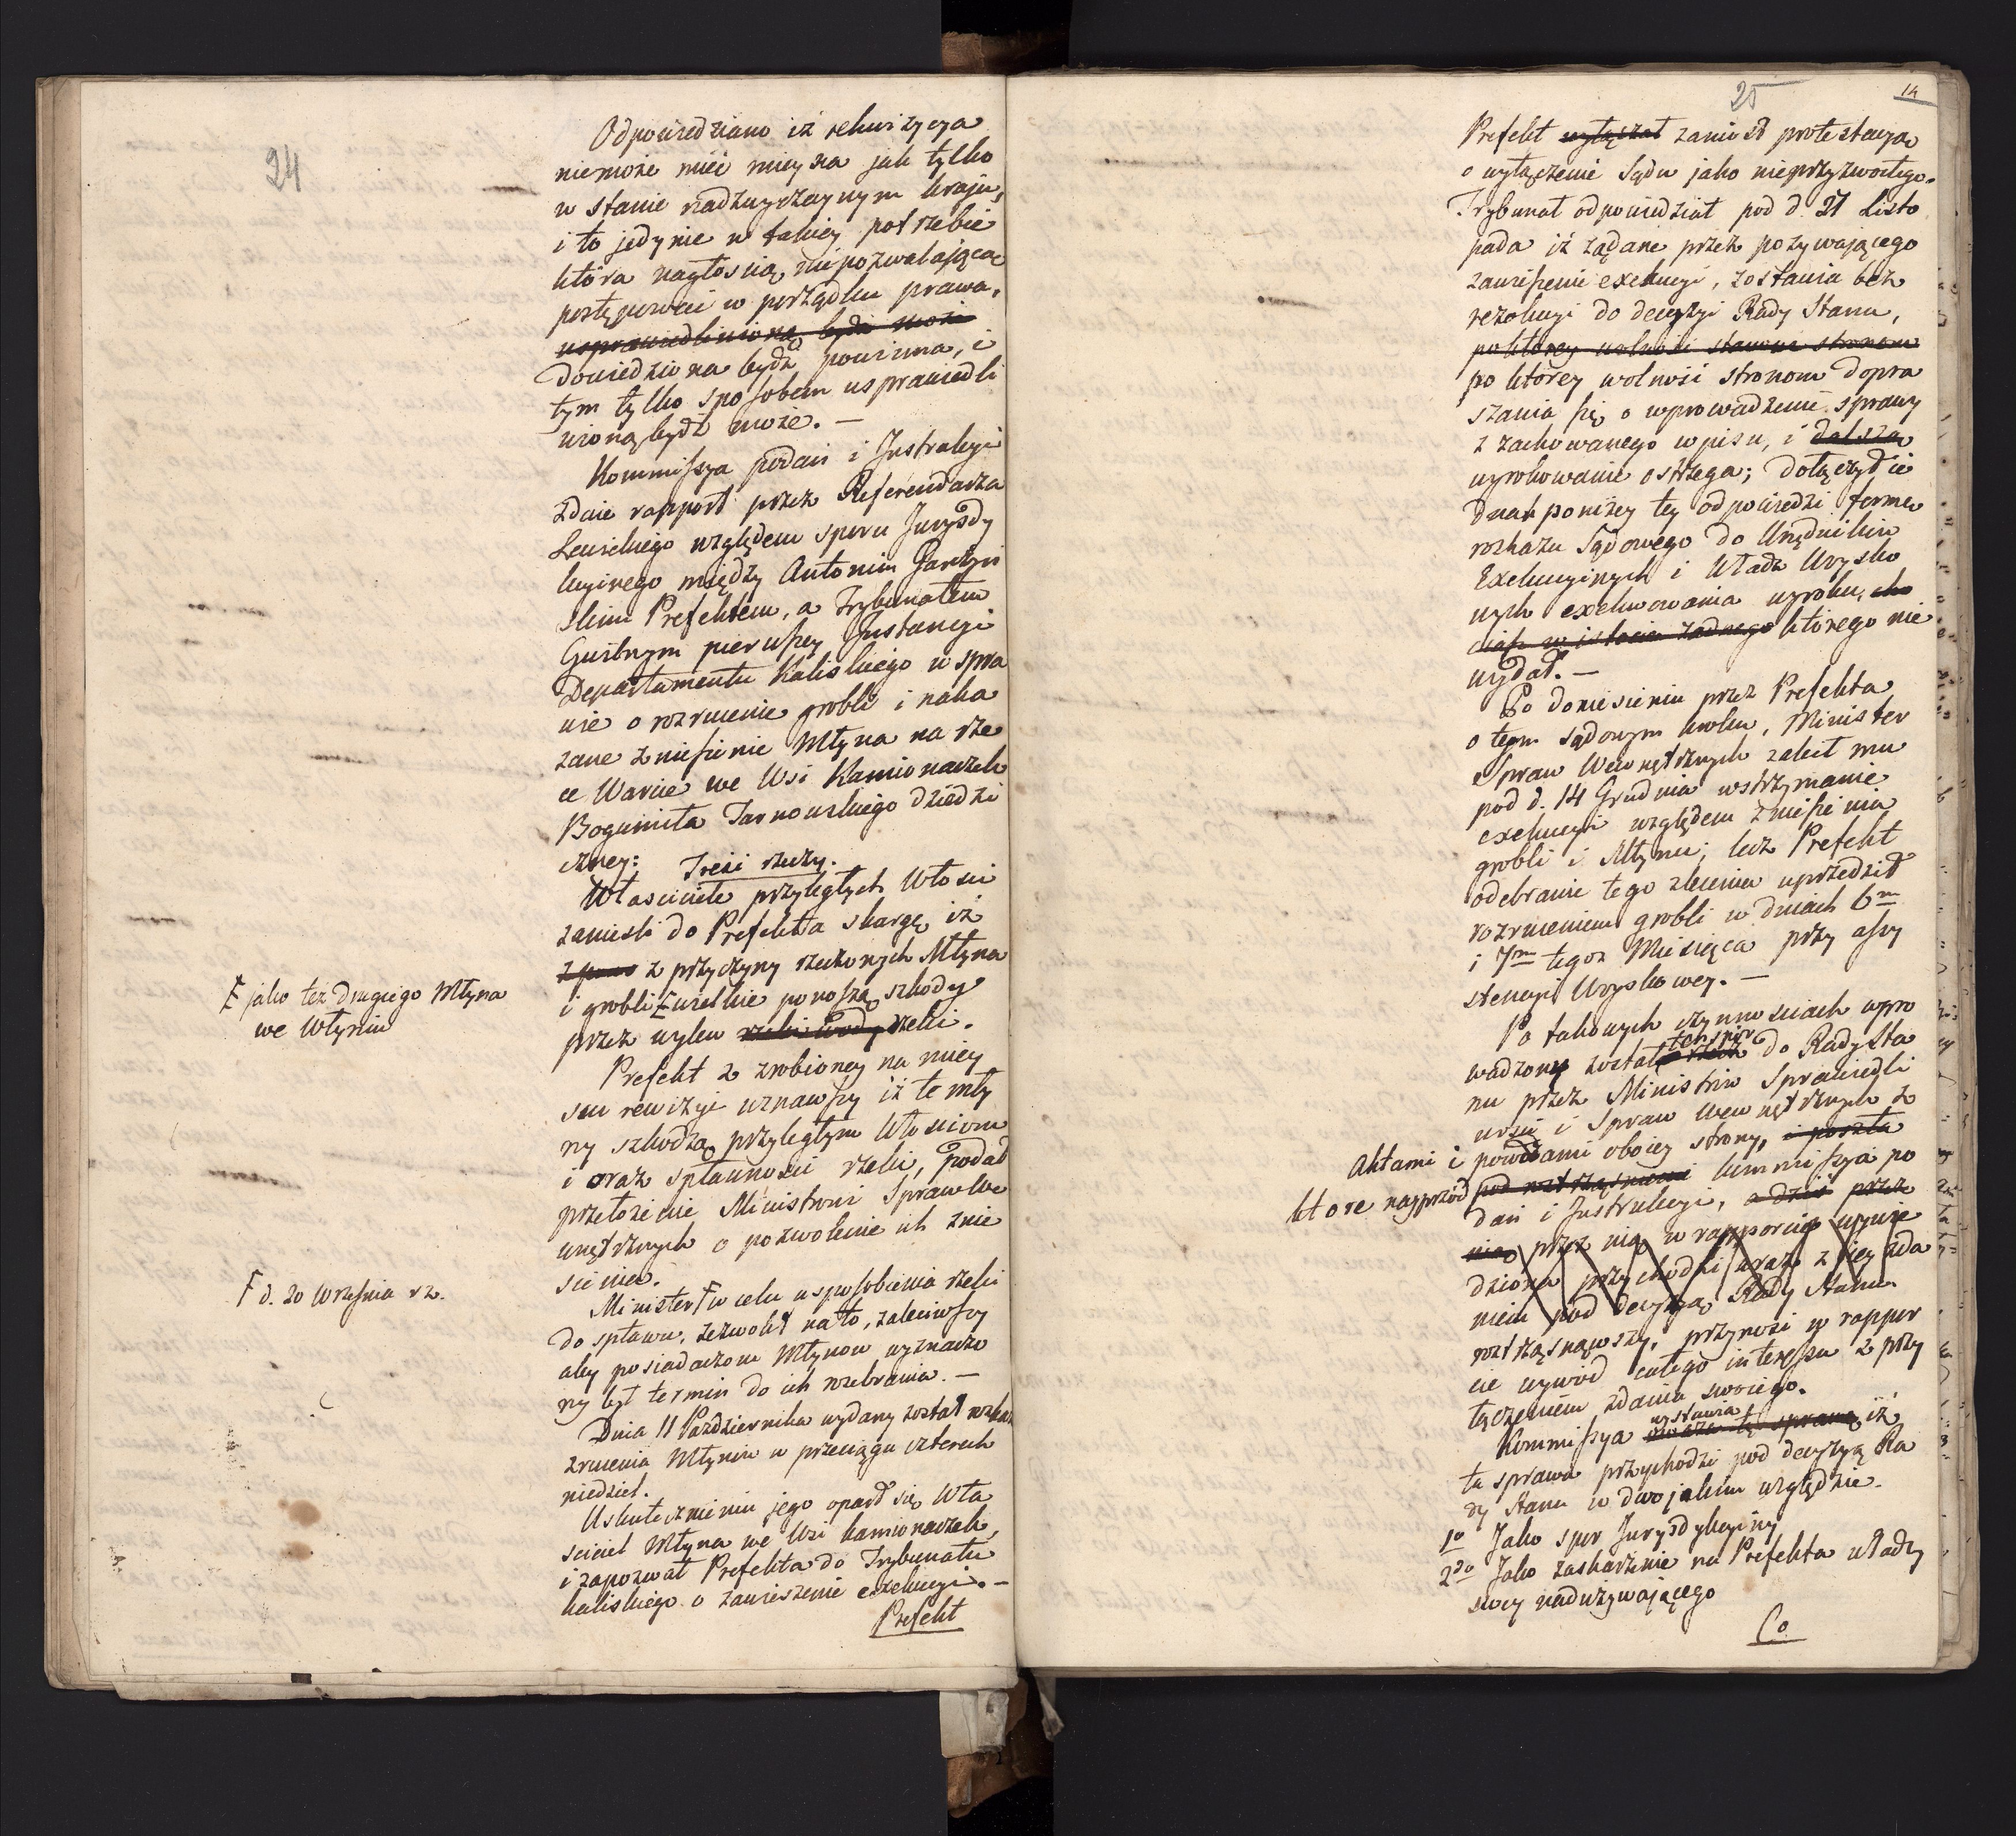 24
Odpowiedziano iż rekwizycya
niemoże mieć mieysca jak tylko
w stanie nadzwyczaynym kraju,
i to jedynie w takiey potrzebie
która nagłością niepozwalającą
postępować w porządku prawa,
usprawiedlinioną bydź może
dowiedziona bydź powinna, i
tym tylko sposobem usprawiedli
wioną bydź może. —
Kommissya podań i Instrukcyi
zdaie rapport przez Referendarza
względem sporu Jurysdy
kcyinego między Antonim Garczyń
skim Prefektem, a Trybunałem
Cywilnym pierwszey Instancyi
Departamentu Kaliskiego w spra
wie o rozrucenie grobli i naka
zane zniesienie Młyna na rze
ce Warcie we Wsi Kamionaczeh
Bogumiła Tarnowskiego dziedzi
czney: Treść rzeczy.
Właściciele przyległych Włości
zanieśli do Prefekta skargę iż
z przyczyny rzeczonych Młyna
i grobli Ŧ wielkie ponoszą szkody
przez wylew rzeki wody rzeki.
Ŧ jako też drugiego Młyna
we Włyniu
Prefekt z zrobioney na miey
scu rewizyi uznawszy iż te mły
ny szkodzą przyległym Włościom
i oraz spławności rzeki, podał
przełożenie Ministrowi Spraw We
wnętrznych o pozwolenie ich znie
sienia.
Minister F w celu usposobienia rzeki
F d. 20 Września r z.
do spławu, zezwolił na to, zaleciwszy
aby posiadaczom Młynow wyznaczo
ny był termin do ich rozebrania. —
Dnia 11 Października wydany został rozkaz
zrucenia Młynow w przeciągu czterech
niedziel.
Uskutecznieniu jego oparł się Wła
ściciel Młyna we Wsi Kamionaczeh,
i zapozwał Prefekta do Trybunału
kaliskiego o zawieszenie exekucyi. —
Prefekt
25
14
Prefekt wyłączał zaniosł protestacyą
o wyłączenie Sądu jako nieprzyzwoitego.
Trybunał odpowiedział pod d. 21 Listo
pada iż żądane przez pozywającego
zawieszenie exekucyi, zostawia bez
rezolucyi do decyzyi Rady Stanu,
po ktorey wolności stawienia stronom
po ktorey wolność stronom dopra
szania się o wprowadzenie sprawy
z zachowanego wpisu, i dalsze
wyrokowanie ostrzega; dołączył ie
dnak poniżey tey odpowiedzi formę
rozkazu Sądowego do Urzędników
Exekucyinych i Władz Woysko
wych exekwowania wyroku, cho
ciaż w istocie żadnego którego nie
wydał. —
Po doniesieniu przez Prefekta
o tym sądowym kroku, Minister
Spraw Wewnętrznych zalecił mu
pod d. 14 Grudnia wstrzymanie
exekucyi względem zniesienia
grobli i Młynu; lecz Prefekt
odebranie tego zlecenia uprzedził
rozrzuceniem grobli w dniach 6m
i 7m tegoż Miesiąca przy assy
stencyi Woyskowey. —
Po takowych czynnościach wpro
wadzony został ten spór do Rady Sta
nu przez Ministrów Sprawiedli
wości i Spraw Wewnętrznych z
Aktami i powodami oboiey strony, i poszła
ktore nayprzód pod roztrząśnienie kommissya po
dań i Instrukcyi, a dziś przez
nią przez nią w rapporcie wywie
dziona przychodzi wraz z iey zda
niem pod decyzyą Rady Stanu
roztrząsnąwszy, przynosi w rappor
cie wywod całego interessu z przy
łączeniem zdania swoiego.
Kommissya wystawia uważa tę sprawę iż
ta sprawa przychodzi pod decyzyą Ra
dy Stanu w dwojakim względzie.
1o Jako spór Jurysdykcyiny
2do Jako zaskarżenie na Prefekta władzy
swey nadużywającego
Co